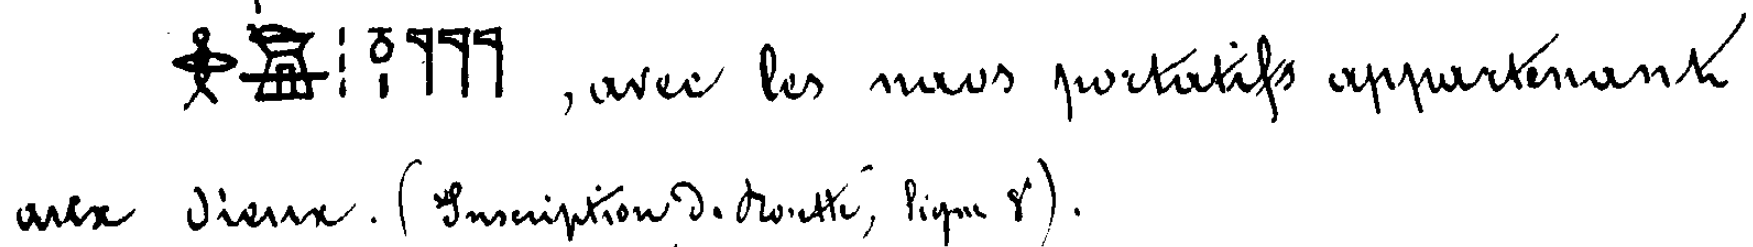 , avec les naos portatifs appartenant
aux Dieux. (Inscription de Rosette, ligne 8).